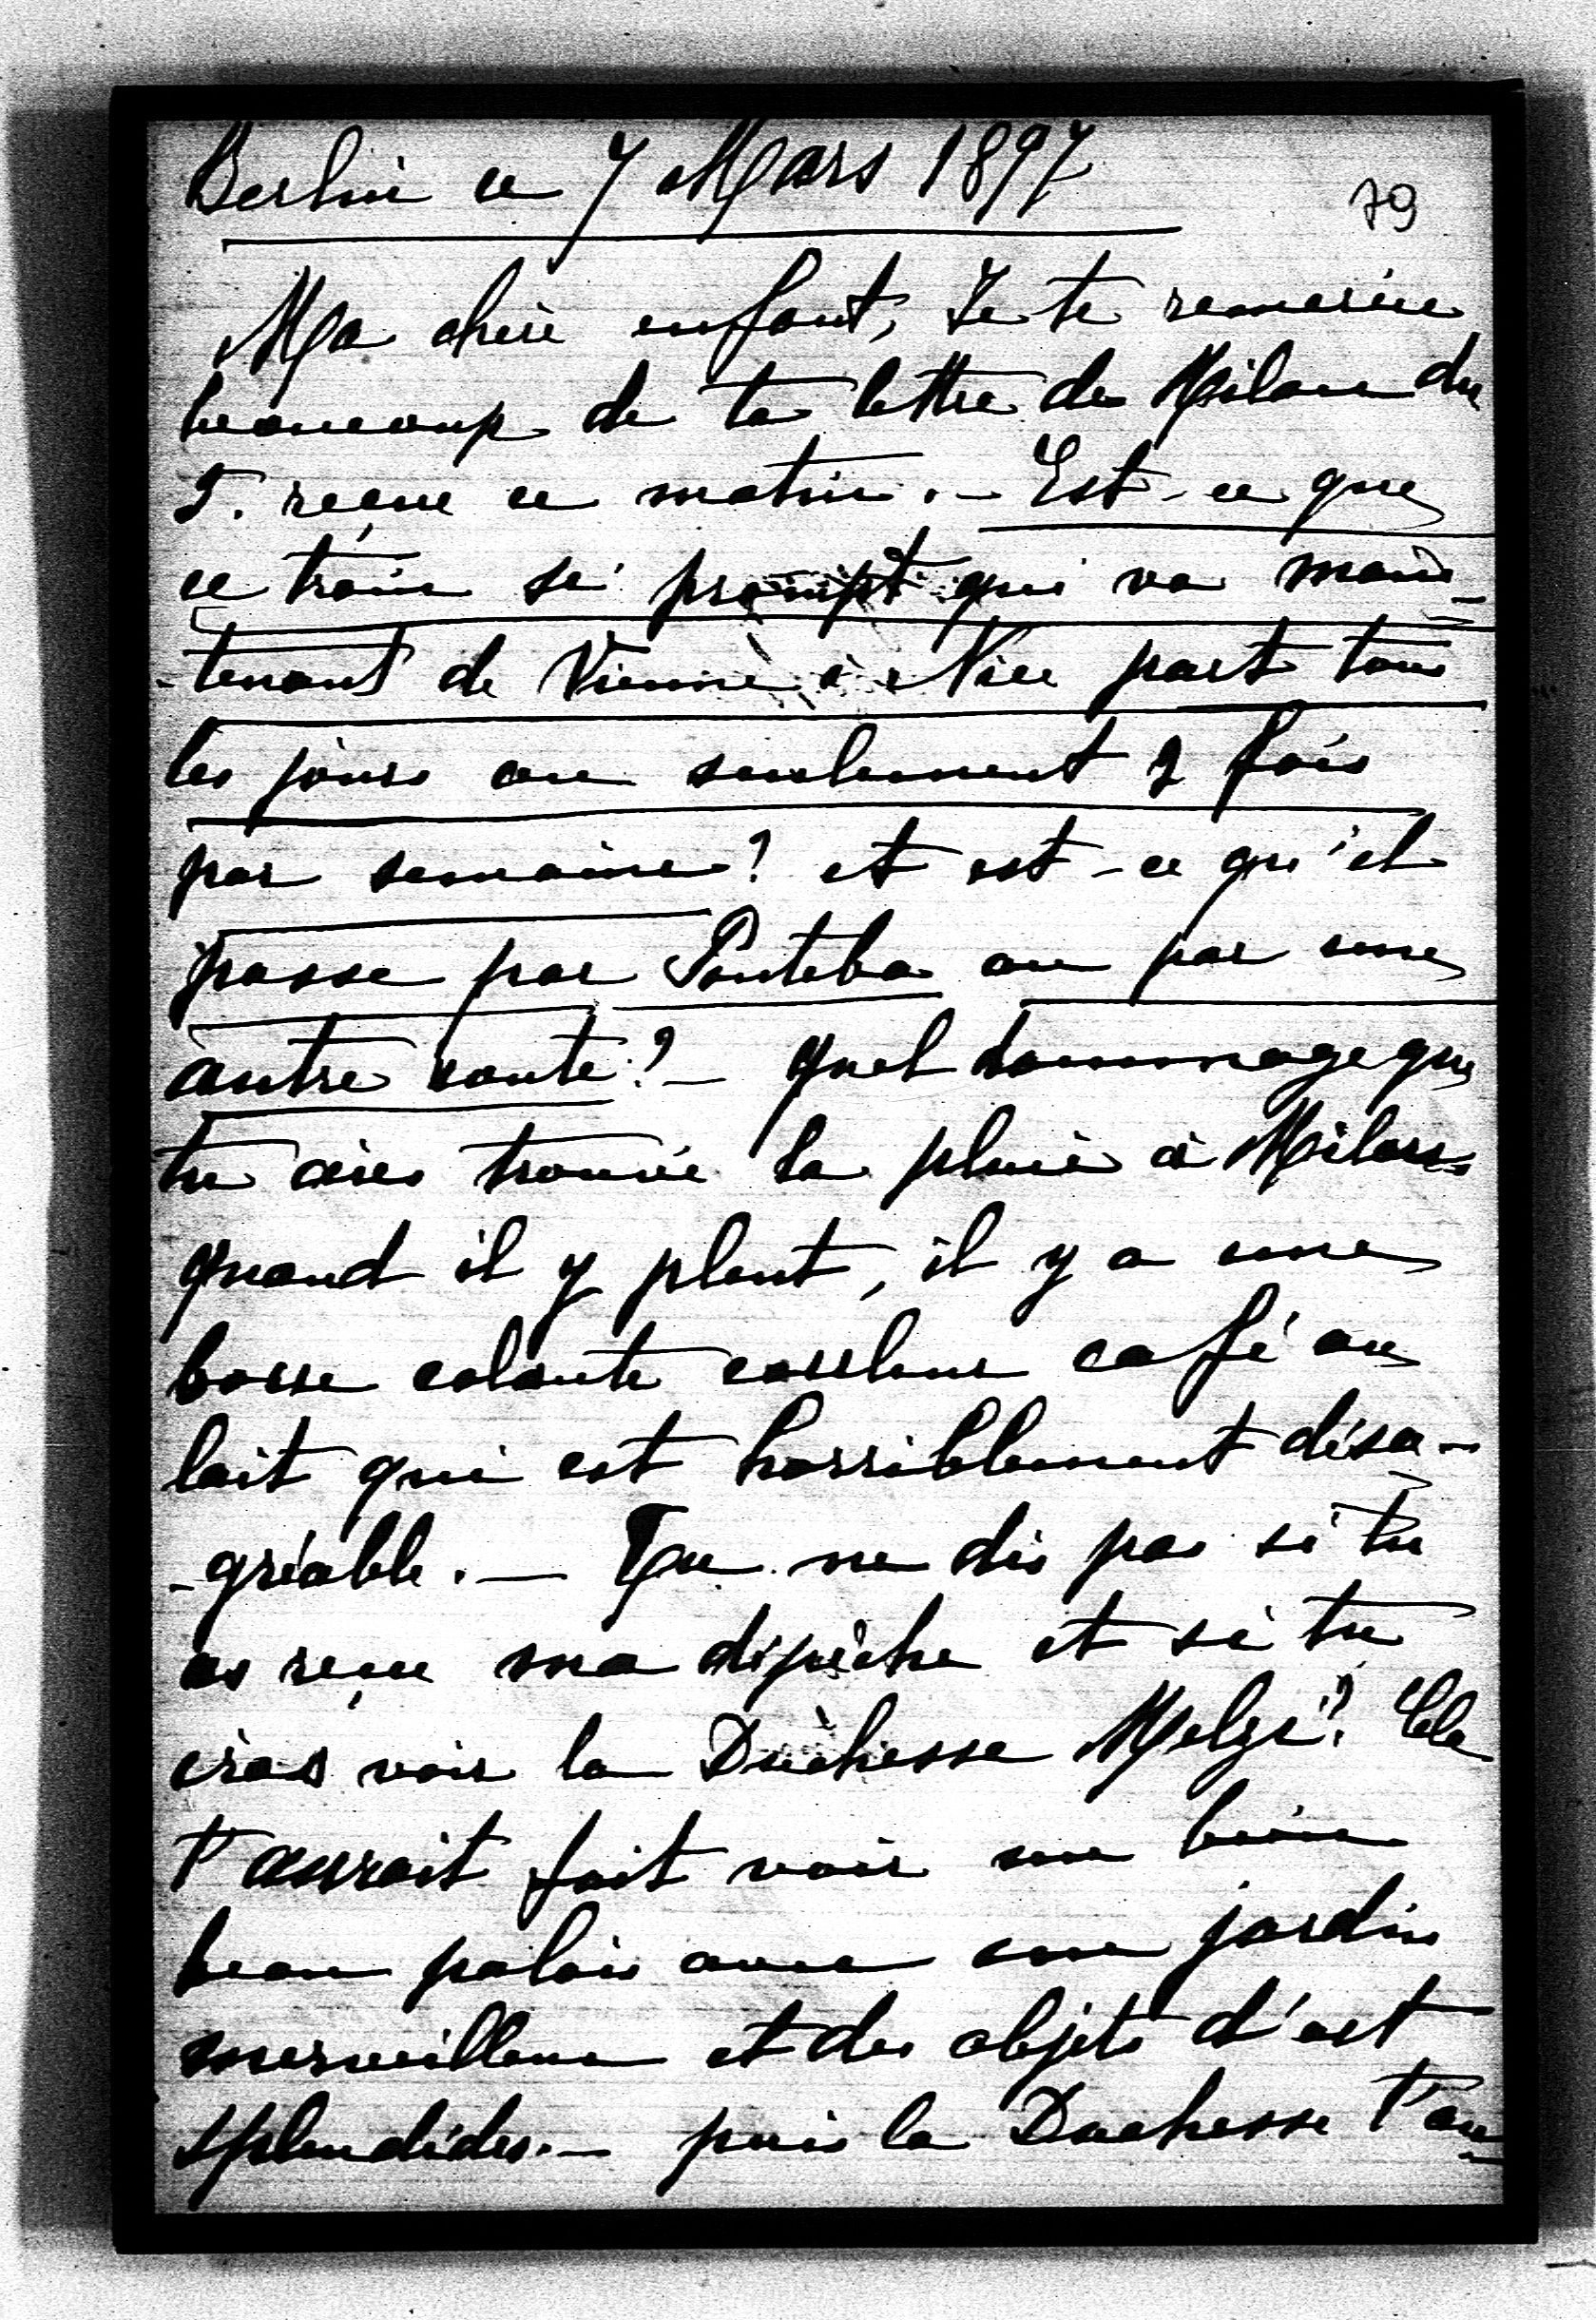 Berlin ce 7 Mars 1897
79
Ma chère enfant, Je te remercie
beaucoup de ta lettre de Milan du
5. reçue ce matin. — Est-ce que
ce train si prompt qui va main-
-tenant de Vienne à Nice part tous
les jours ou seulement 2 fois
par semaine? et est-ce qu'il
passe par Ponteba ou par une
autre route? — Quel dommage que
tu aies trouvé la pluie à Milan
quand il y pleut, il y a une
boue colante couleur café au
lait qui est horriblement désa-
-gréable. — Tu ne dis pas si tu
as reçu ma dépêche et si tu
iras voir la Duchesse Melzi? Elle
t'aurait fait voir un bien
beau palais avec un jardin
merveilleux et des objets d'art
splendides. — puis la Duchesse t'au-